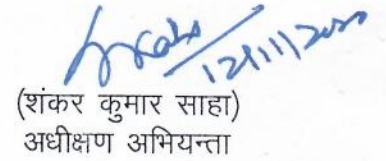 12/11/2020
(शंकर कुमार साहा)
अधीक्षण अभियन्ता